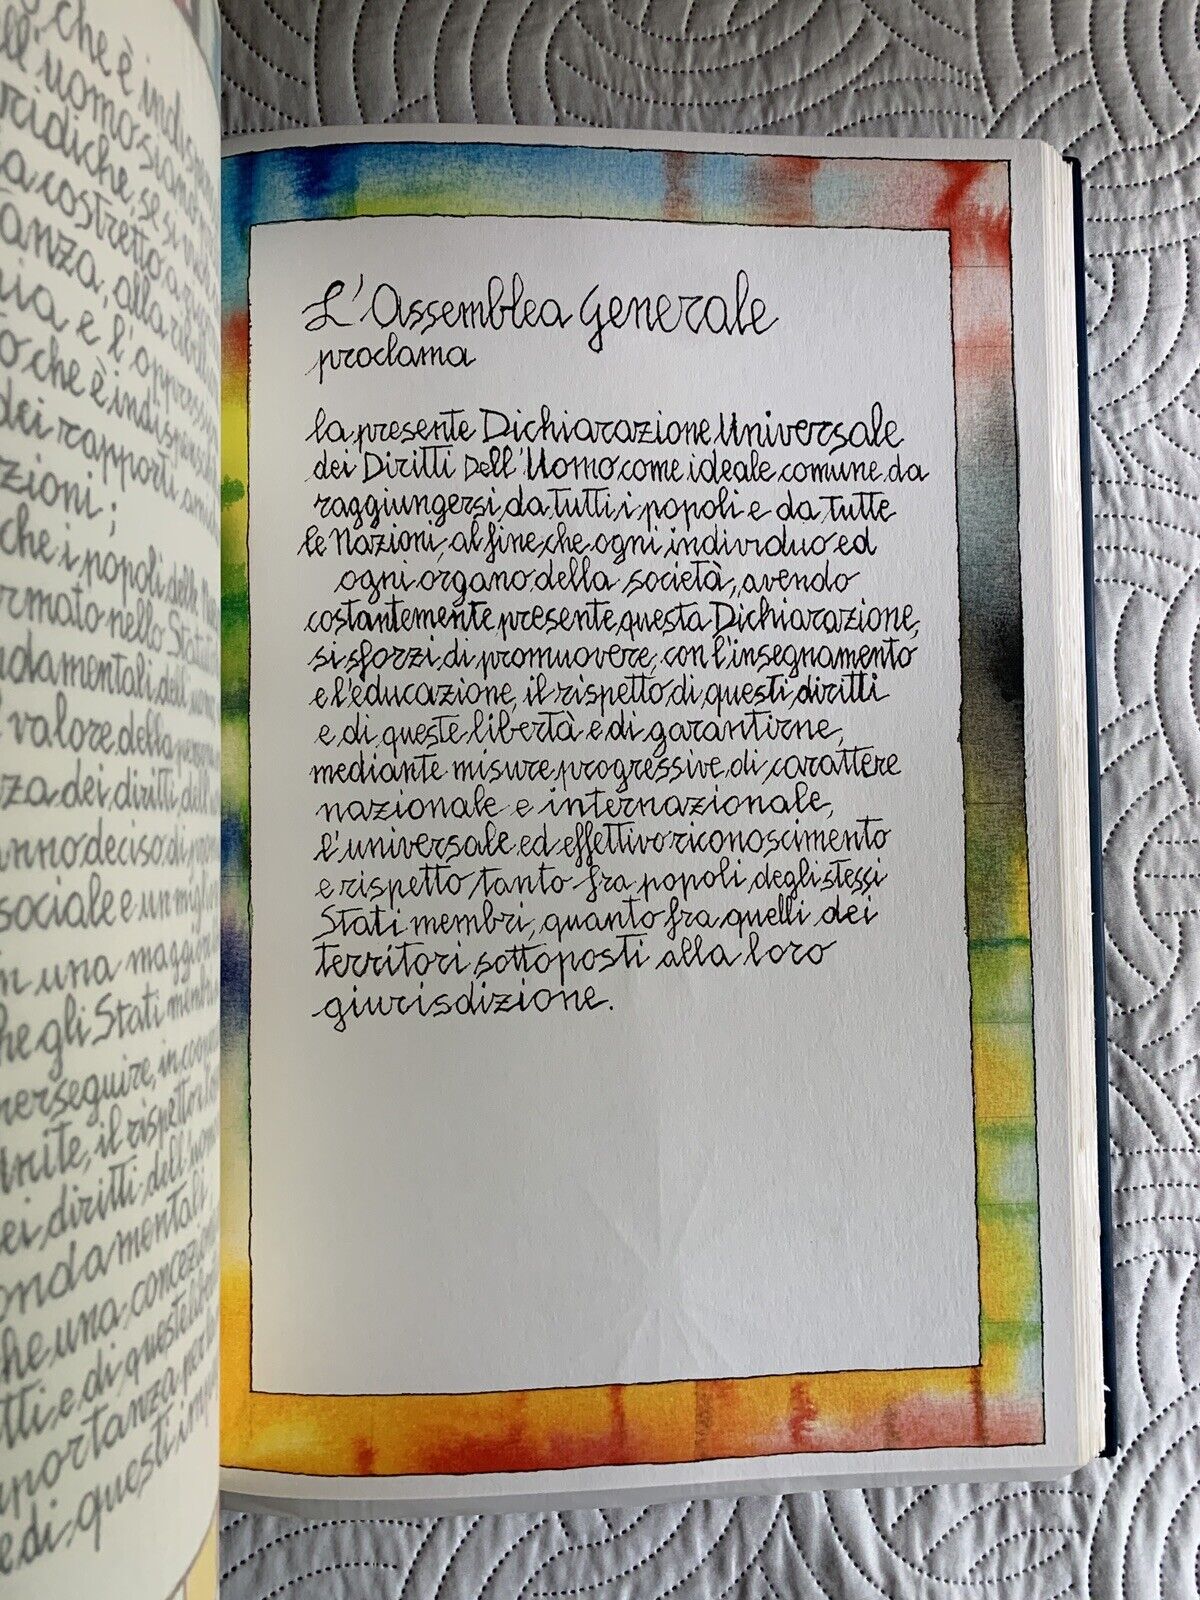 che è indispen
ell'uomo siano
ridiche, se si vuole
costretto a
anza, alla ribell
nia e l'oppressi
o che è indispensab
dei rapporti
zioni;
che i popoli delle
rmato nello Statut
ndamentali dell'uomo
valore della persona
za dei diritti dell'
anno deciso di prom
sociale e un miglior
in una maggior
he gli Stati membri
perseguire, in coop
nite, il rispetto
ei diritti dell'uomo
ondamentali,
he una concezion
tti e di queste libert
portanza per la
e di questi imp
L'Assemblea Generale
proclama
la presente Dichiarazione Universale
dei Diritti Dell'Uomo come ideale comune da
raggiungersi da tutti i popoli e da tutte
le Nazioni, al fine che ogni individuo ed
ogni organo della società, avendo
costantemente presente questa Dichiarazione,
si sforzi di promuovere, con l'insegnamento
e l'educazione, il rispetto di questi diritti
e di queste libertà e di garantirne,
mediante misure progressive di carattere
nazionale e internazionale,
l'universale ed effettivo riconoscimento
e rispetto tanto fra popoli degli stessi
Stati membri, quanto fra quelli dei
territori sottoposti alla loro
giurisdizione.